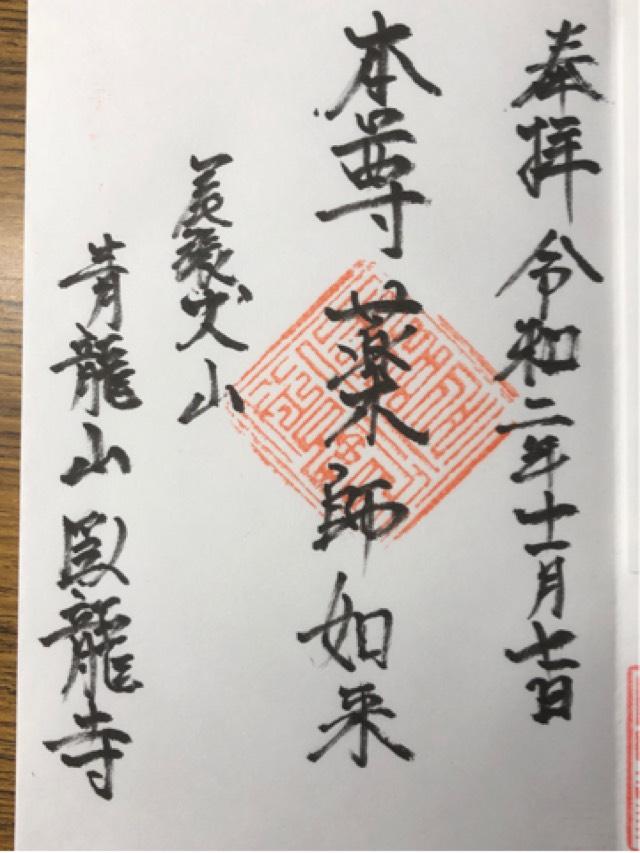 奉拝 令和二年十一月七日
本尊 薬師如来
犬山
青龍山 臥龍寺